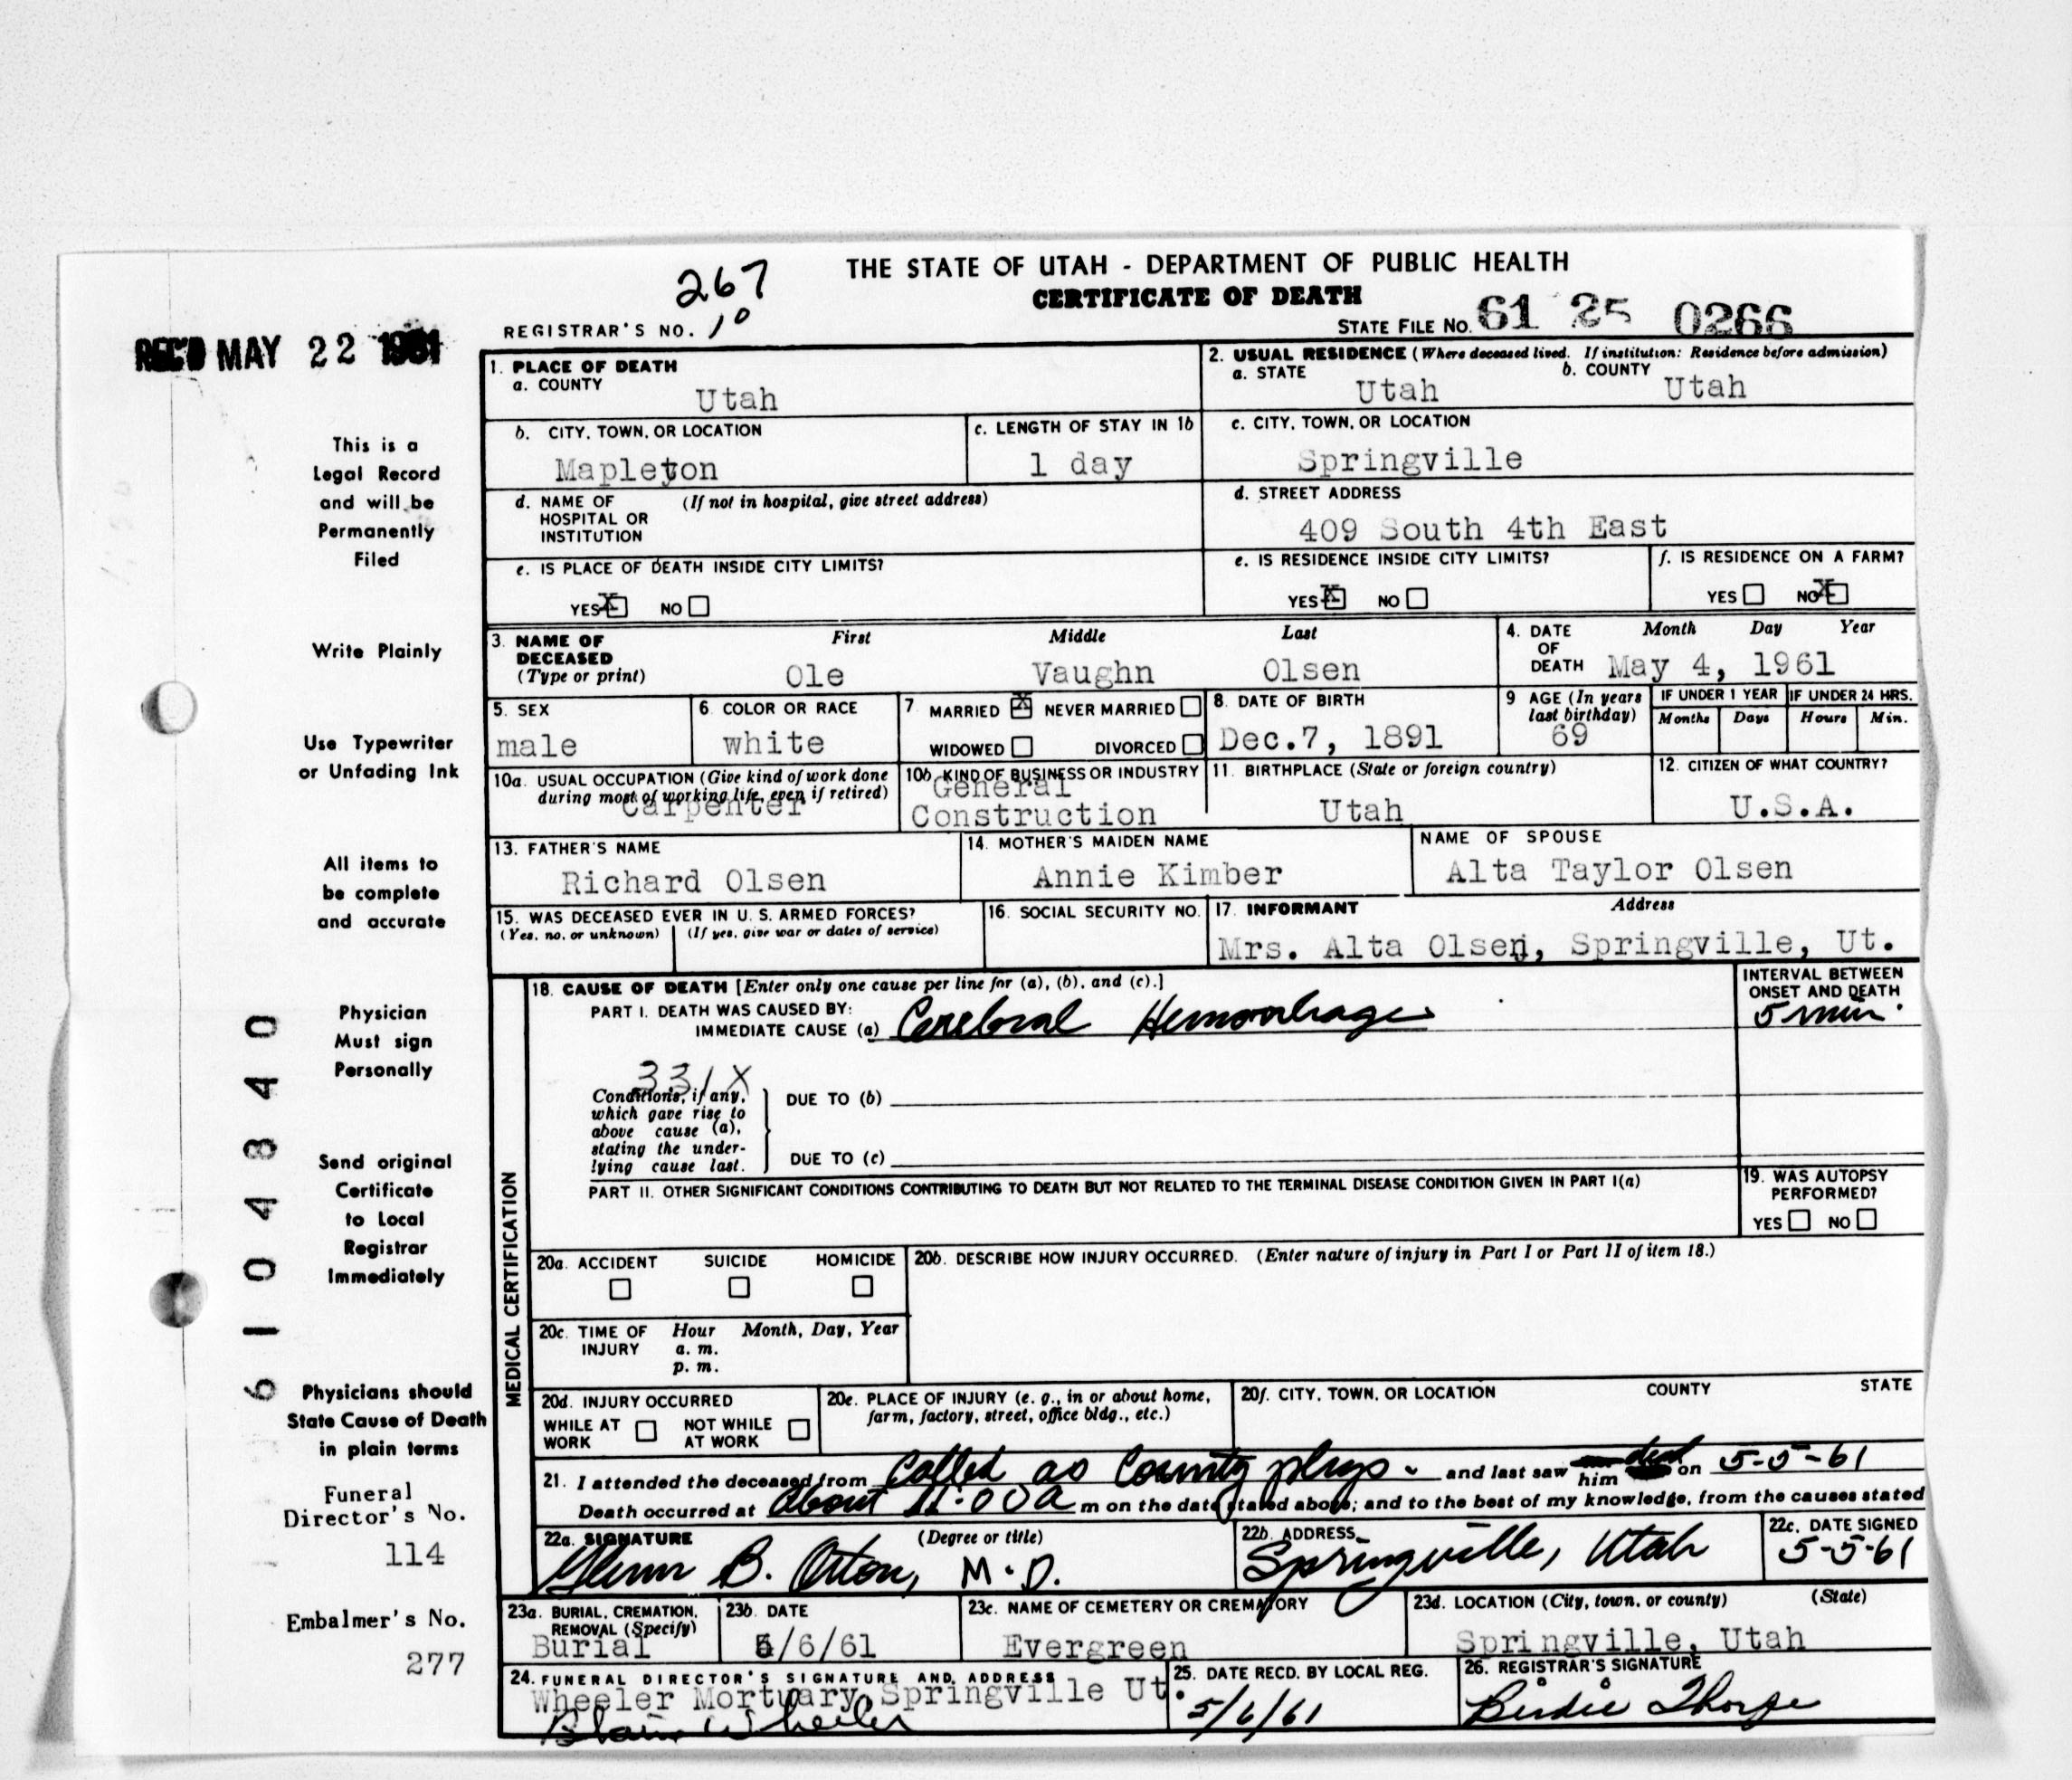 THE STATE OF UTAH - DEPARTMENT OF PUBLIC HEALTH
CERTIFICATE OF DEATH
267
REGISTRAR'S NO. 10
STATE FILE NO. 61 25 0266
REC'D MAY 22 1961
This is a
Legal Record
and will be
Permanently
Filed
Write Plainly
Use Typewriter
or Unfading Ink
All items to
be complete
and accurate
Physician
Must sign
Personally
Send original
Certificate
to Local
Registrar
Immediately
Physicians should
State Cause of Death
in plain terms
Funeral
Director's No.
114
Embalmer's No.
277
61 04840
1. PLACE OF DEATH
a. COUNTY
Utah
2. USUAL RESIDENCE (Where deceased lived. If institution: Residence before admission)
a. STATE
Utah
b. COUNTY
Utah
b. CITY, TOWN, OR LOCATION
Mapleton
c. LENGTH OF STAY IN 1b
1 day
c. CITY, TOWN, OR LOCATION
Springville
d. NAME OF (If not in hospital, give street address)
HOSPITAL OR
INSTITUTION
d. STREET ADDRESS
409 South 4th East
e. IS PLACE OF DEATH INSIDE CITY LIMITS?
YES X NO
e. IS RESIDENCE INSIDE CITY LIMITS?
YES X NO
f. IS RESIDENCE ON A FARM?
YES NO X
3. NAME OF
DECEASED
(Type or print)
First Middle Last
Ole Vaughn Olsen
4. DATE
OF
DEATH
Month Day Year
May 4, 1961
5. SEX
male
6. COLOR OR RACE
white
7 MARRIED X NEVER MARRIED
WIDOWED DIVORCED
8. DATE OF BIRTH
Dec.7, 1891
9 AGE (In years
last birthday)
69
IF UNDER 1 YEAR
Months Days
IF UNDER 24 HRS.
Hours Min.
10a. USUAL OCCUPATION (Give kind of work done
during most of working life, even if retired)
Carpenter
10b. KIND OF BUSINESS OR INDUSTRY
General
Construction
11. BIRTHPLACE (State or foreign country)
Utah
12. CITIZEN OF WHAT COUNTRY?
U.S.A.
13. FATHER'S NAME
Richard Olsen
14. MOTHER'S MAIDEN NAME
Annie Kimber
NAME OF SPOUSE
Alta Taylor Olsen
15. WAS DECEASED EVER IN U. S. ARMED FORCES?
(Yes, no, or unknown) (If yes, give war or dates of service)
16. SOCIAL SECURITY NO.
17. INFORMANT Address
Mrs. Alta Olsen, Springville, Ut.
MEDICAL CERTIFICATION
18. CAUSE OF DEATH [Enter only one cause per line for (a), (b), and (c).]
PART I. DEATH WAS CAUSED BY:
IMMEDIATE CAUSE (a) Cerebral Hemorrhage
INTERVAL BETWEEN
ONSET AND DEATH
5 min.
331X
Conditions, if any,
which gave rise to
above cause (a),
stating the under-
lying cause last.
DUE TO (b)
DUE TO (c)
PART II. OTHER SIGNIFICANT CONDITIONS CONTRIBUTING TO DEATH BUT NOT RELATED TO THE TERMINAL DISEASE CONDITION GIVEN IN PART I(a)
19. WAS AUTOPSY
PERFORMED?
YES NO
20a. ACCIDENT SUICIDE HOMICIDE
20b. DESCRIBE HOW INJURY OCCURRED. (Enter nature of injury in Part I or Part II of item 18.)
20c. TIME OF
INJURY
Hour Month, Day, Year
a. m.
p. m.
20d. INJURY OCCURRED
WHILE AT
WORK
NOT WHILE
AT WORK
20e. PLACE OF INJURY (e. g., in or about home,
farm, factory, street, office bldg., etc.)
20f. CITY, TOWN, OR LOCATION COUNTY STATE
21. I attended the deceased from Called as County phys. and last saw him dead on 5-5-61
Death occurred at about 11:00 a m on the date stated above; and to the best of my knowledge, from the causes stated
22a. SIGNATURE (Degree or title)
Glenn B. Orton, M.D.
22b. ADDRESS
Springville, Utah
22c. DATE SIGNED
5-5-61
23a. BURIAL, CREMATION,
REMOVAL (Specify)
Burial
23b. DATE
5/6/61
23c. NAME OF CEMETERY OR CREMATORY
Evergreen
23d. LOCATION (City, town, or county) (State)
Springville, Utah
24. FUNERAL DIRECTOR'S SIGNATURE AND ADDRESS
Wheeler Mortuary, Springville Ut.
Blain Wheeler
25. DATE RECD. BY LOCAL REG.
5/6/61
26. REGISTRAR'S SIGNATURE
Birdie Thorpe